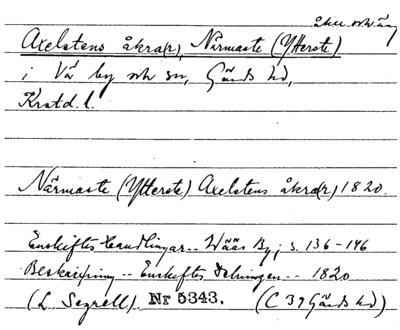 åker och äng
Axelstens åkra(r), Närmaste (Ytterste)
i Vä by och sn, Gärds hd,
Krstd. l.
Närmaste (Ytterste) Axelstens åkra(r) 1820.
Enskiftes Handlingar -- Wääs By; s. 136-146
Beskrifning -- Enskiftes Delningen -- 1820
(L. Segrell). Nr 5343. (C 39 Gärds hd)